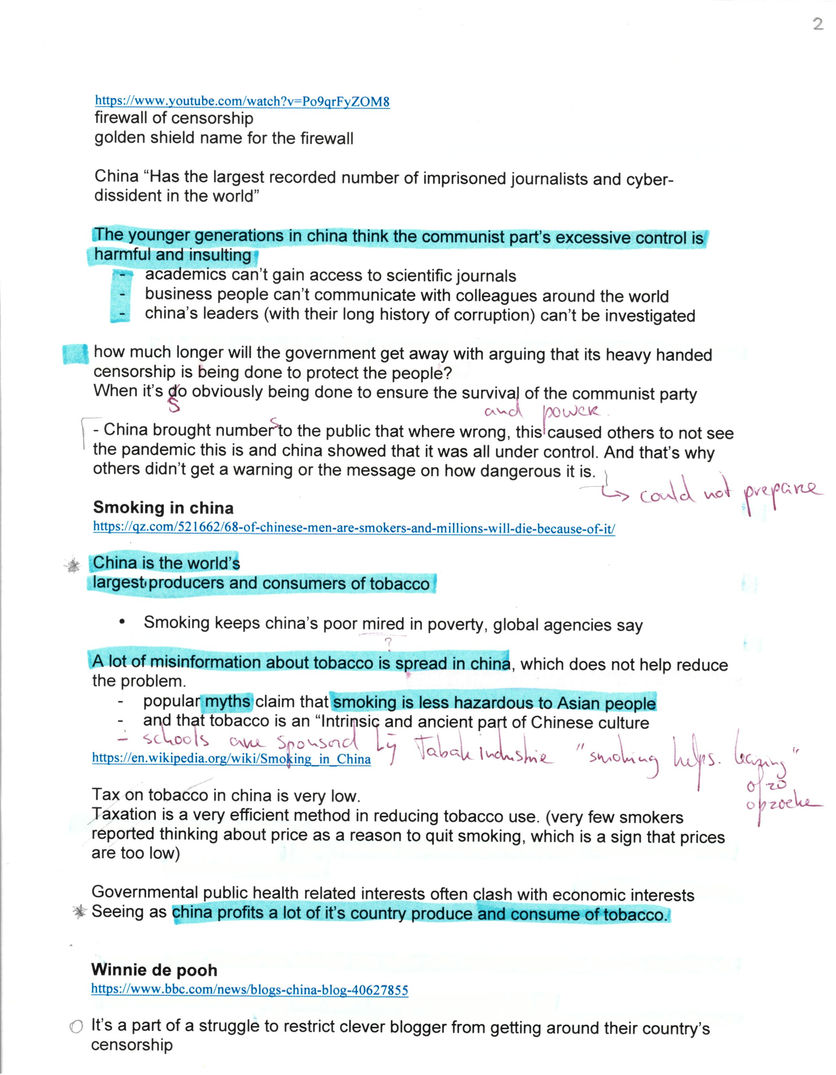 2
https://www.youtube.com/watch?v=Po9qrFyZOM8
firewall of censorship
golden shield name for the firewall
China “Has the largest recorded number of imprisoned journalists and cyber-
dissident in the world”
The younger generations in china think the communist part’s excessive control is
harmful and insulting
- academics can’t gain access to scientific journals
- business people can’t communicate with colleagues around the world
- china’s leaders (with their long history of corruption) can’t be investigated
how much longer will the government get away with arguing that its heavy handed
censorship is being done to protect the people?
When it’s go obviously being done to ensure the survival of the communist party
s
and power.
s
- China brought number to the public that where wrong, this caused others to not see
the pandemic this is and china showed that it was all under control. And that’s why
others didn’t get a warning or the message on how dangerous it is.
↳ could not prepare
Smoking in china
https://qz.com/521662/68-of-chinese-men-are-smokers-and-millions-will-die-because-of-it/
* China is the world’s
largest producers and consumers of tobacco
• Smoking keeps china’s poor mired in poverty, global agencies say
?
A lot of misinformation about tobacco is spread in china, which does not help reduce
the problem.
- popular myths claim that smoking is less hazardous to Asian people
- and that tobacco is an “Intrinsic and ancient part of Chinese culture
- schools are sponsord by Tabak Industrie "smoking helps
https://en.wikipedia.org/wiki/Smoking_in_China
of zo
opzoeke
Tax on tobacco in china is very low.
Taxation is a very efficient method in reducing tobacco use. (very few smokers
reported thinking about price as a reason to quit smoking, which is a sign that prices
are too low)
Governmental public health related interests often clash with economic interests
* Seeing as china profits a lot of it’s country produce and consume of tobacco.
Winnie de pooh
https://www.bbc.com/news/blogs-china-blog-40627855
It’s a part of a struggle to restrict clever blogger from getting around their country’s
censorship